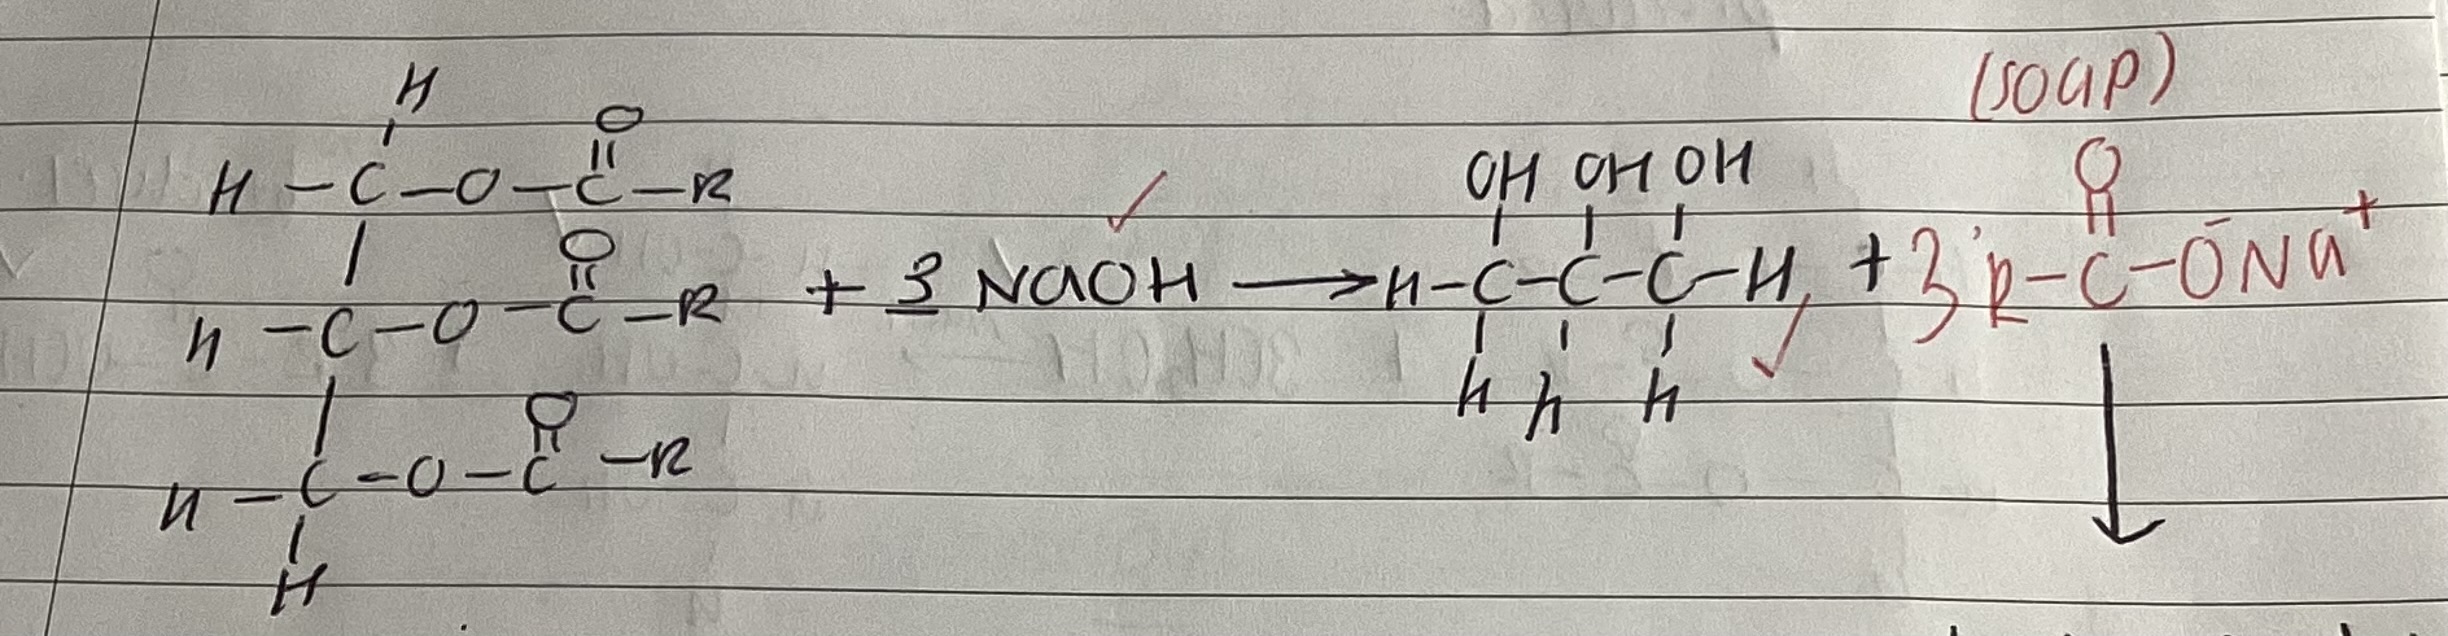 (soap)
H
O
OH OH OH
O
H – C – O – C – R
O
+ 3 NaOH → H – C – C – C – H + 3 R – C – O⁻Na⁺
H – C – O – C – R
H H H
O
H – C – O – C – R
H